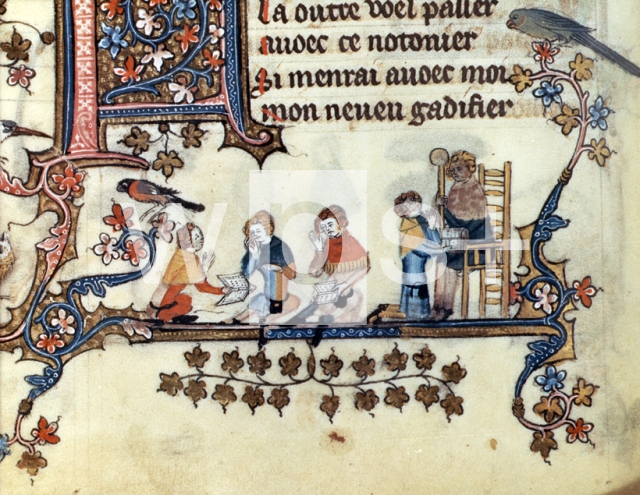 la outre voel passer
avoec ce notonier
Si menrai avoec moi
mon neveu gadifier
wps+